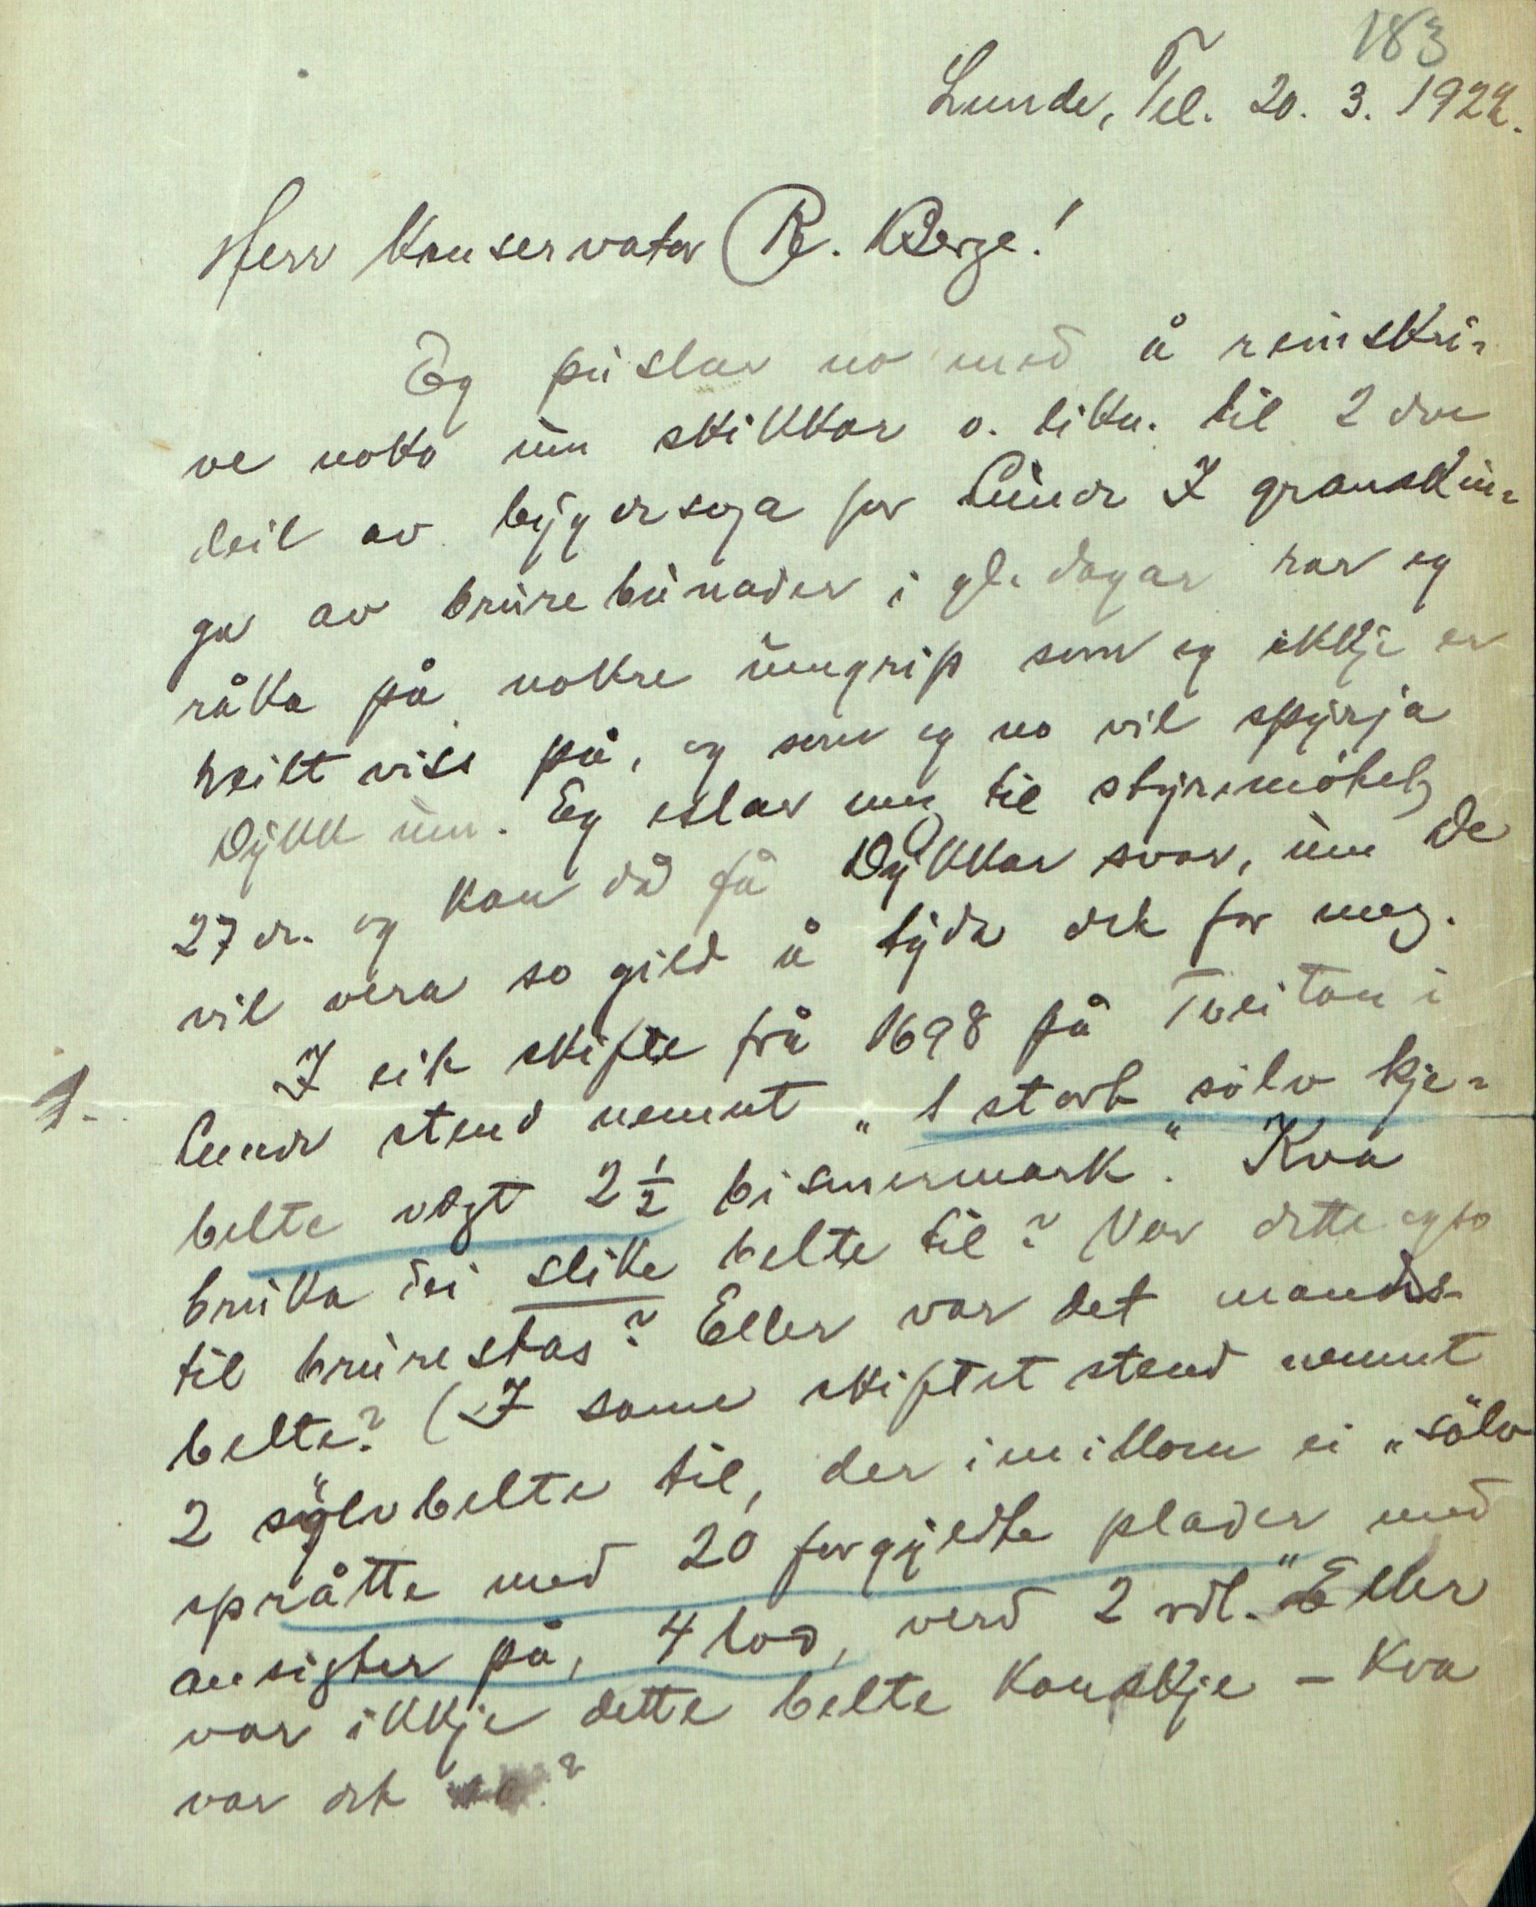 183
Lunde, Tel. 20. 3. 1922.
Herr Konservator R. Berge!
Eg puslar no med å reinskri-
ve noko um skikkar o. likn. til 2dre
deil av bygdesoga for Lunde I granskin-
ga av brurebunader i gl. dagar har eg
råka på nokre umgrip som eg ikkje er
heilt viss på, og som eg no vil spyrja
Dykk um. Eg eslar meg til styremötet
27de. og kan då få Dykkar svar, um De
vil vera so gild å tyda det for meg.
1. I eit skifte frå 1698 på Tveitan i
Lunde stend nemnt „1 stort sölv kje-
belte vegt 2 ½ bismermark". Kva
bruka dei slike belte til? Var dette ogso
til brurestas? Eller var det manns-
belte? (I same skiftet stend nemnt
2 sylvbelte til, der imillom ei „sölv
språtte med 20 forgyldte plader med
ansigter på, 4 lod, verd 2 rdl." Eller
var ikkje dette belte kanskje – kva
var det so?